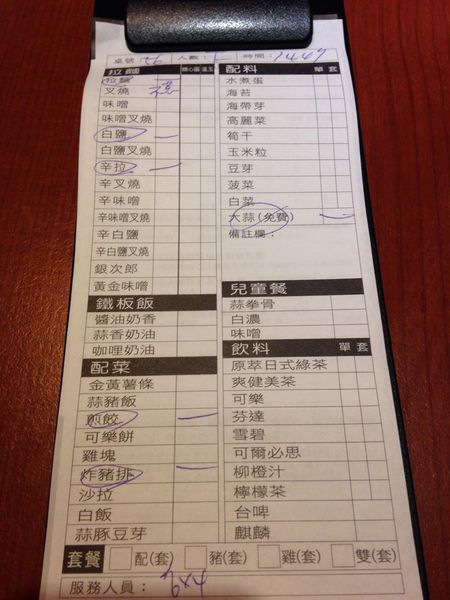 桌號: 56 人數: 時間: 1449
拉麵
叉燒
味噌
味噌叉燒
白鹽 一
白鹽叉燒
辛拉 一
辛叉燒
辛味噌
辛味噌叉燒
辛白鹽
辛白鹽叉燒
銀次郎
黃金味噌
鐵板飯
醬油奶香
蒜香奶油
咖哩奶油
配菜
金黃薯條
蒜豬飯
煎餃 一
可樂餅
雞塊
炸豬排 一
沙拉
白飯
蒜豚豆芽
配料 單 套
水煮蛋
海苔
海帶芽
高麗菜
筍干
玉米粒
豆芽
菠菜
白菜
大蒜(免費) 一
備註欄:
兒童餐
蒜拳骨
白濃
味噌
飲料 單 套
原萃日式綠茶
爽健美茶
可樂
芬達
雪碧
可爾必思
柳橙汁
檸檬茶
台啤
麒麟
套餐 配(套) 豬(套) 雞(套) 雙(套)
服務人員: